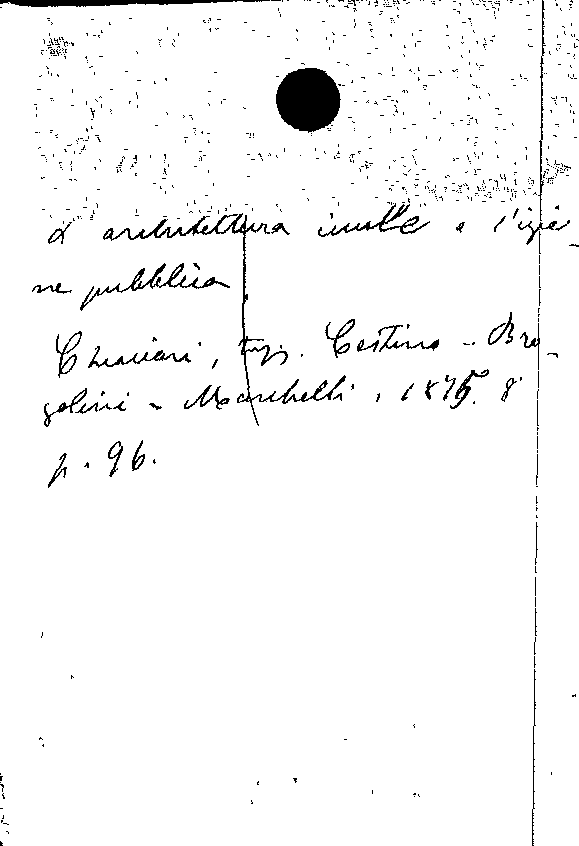 L'architettura civile e l'igie-
ne pubblica
Chiavari, tip. Cestino - Bra-
golini - Marchelli, 1875. 8°
p. 96.